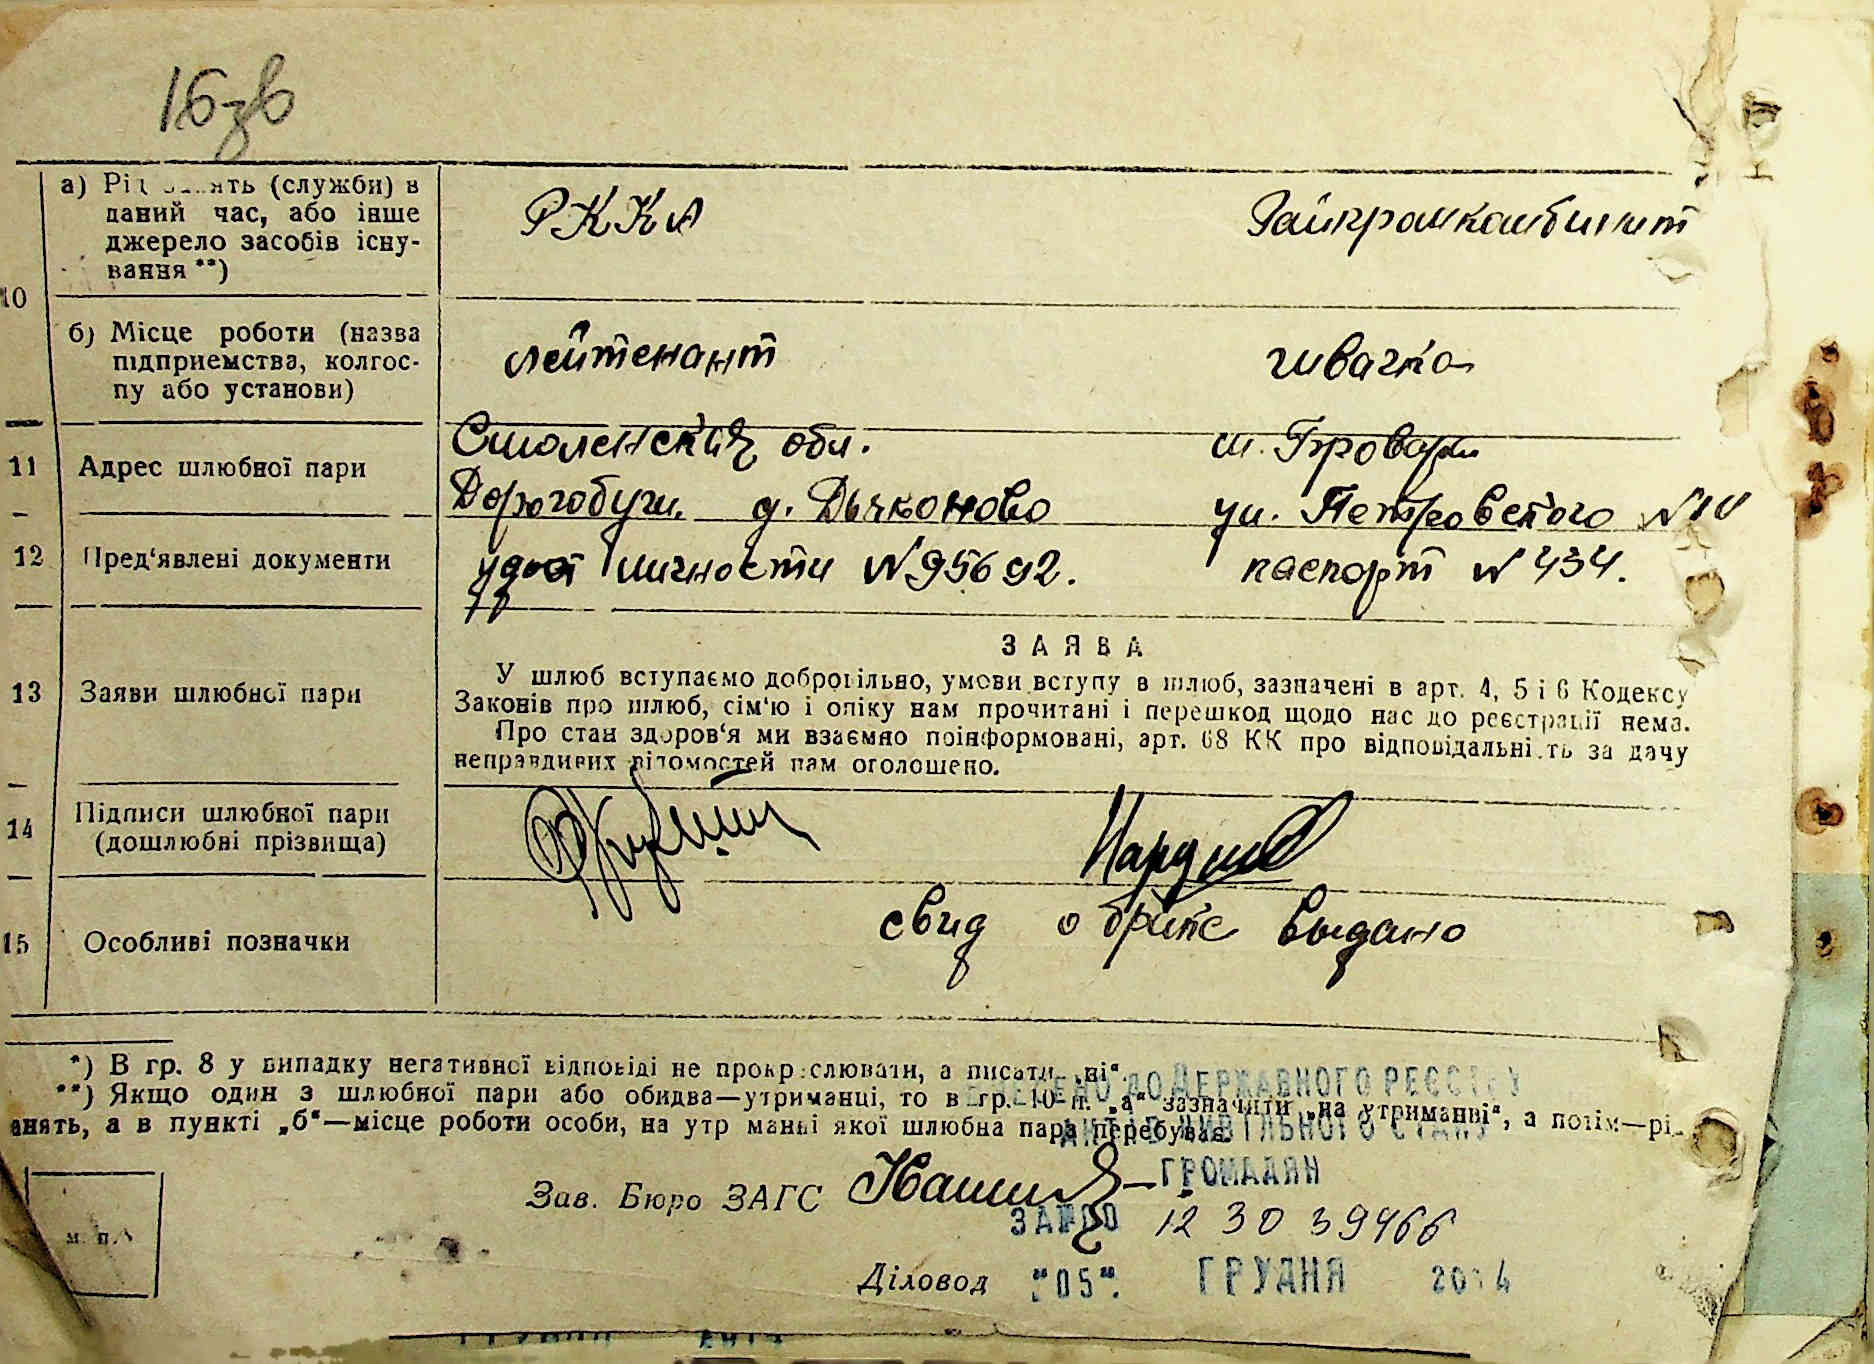 16зв
а) Рід занять (служби) в
даний час, або інше
джерело засобів існу-
вання **)
РККА
Райпромкомбинат
10
б) Місце роботи (назва
підприємства, колгос-
пу або установи)
лейтенант
швачка
11
Адрес шлюбної пари
Смоленския обл.
Дорогобуш. д. Дьяконово
м. Бровари
ул. Петровского N
12
Пред‘явлені документи
личности N 95692.
паспорт N 434.
13
Заяви шлюбної пари
ЗАЯВА
У шлюб вступаємо добровільно, умови вступу в шлюб, зазначені в арт. 4, 5 і 6 Кодексу
Законів про шлюб, сім‘ю і опіку нам прочитані і перешкод щодо нас до реєстрації нема.
Про стан здоров‘я ми взаємно поінформовані, арт. 68 КК про відповідальність за дачу
неправдивих відомостей нам оголошено.
14
Підписи шлюбної пари
(дошлюбні прізвища)
15
Особливі позначки
свид о браке выдано
*) В гр. 8 у випадку негативної відповіді не прокреслювати, а писати „ні“.
**) Якщо один з шлюбної пари або обидва—утриманці, то в гр. 10 п. „а“ зазначити „на утриманні“, а потім—рід
занять, а в пункті „б“—місце роботи особи, на утриманні якої шлюбна пара перебуває.
ВНЕСЕНО ДО ДЕРЖАВНОГО РЕЄСТРУ
АКТІВ ЦИВІЛЬНОГО СТАНУ
ГРОМАДЯН
Зав. Бюро ЗАГС
ЗА № 00 12 30 39466
Діловод
"05" ГРУДНЯ 2014
м. п.